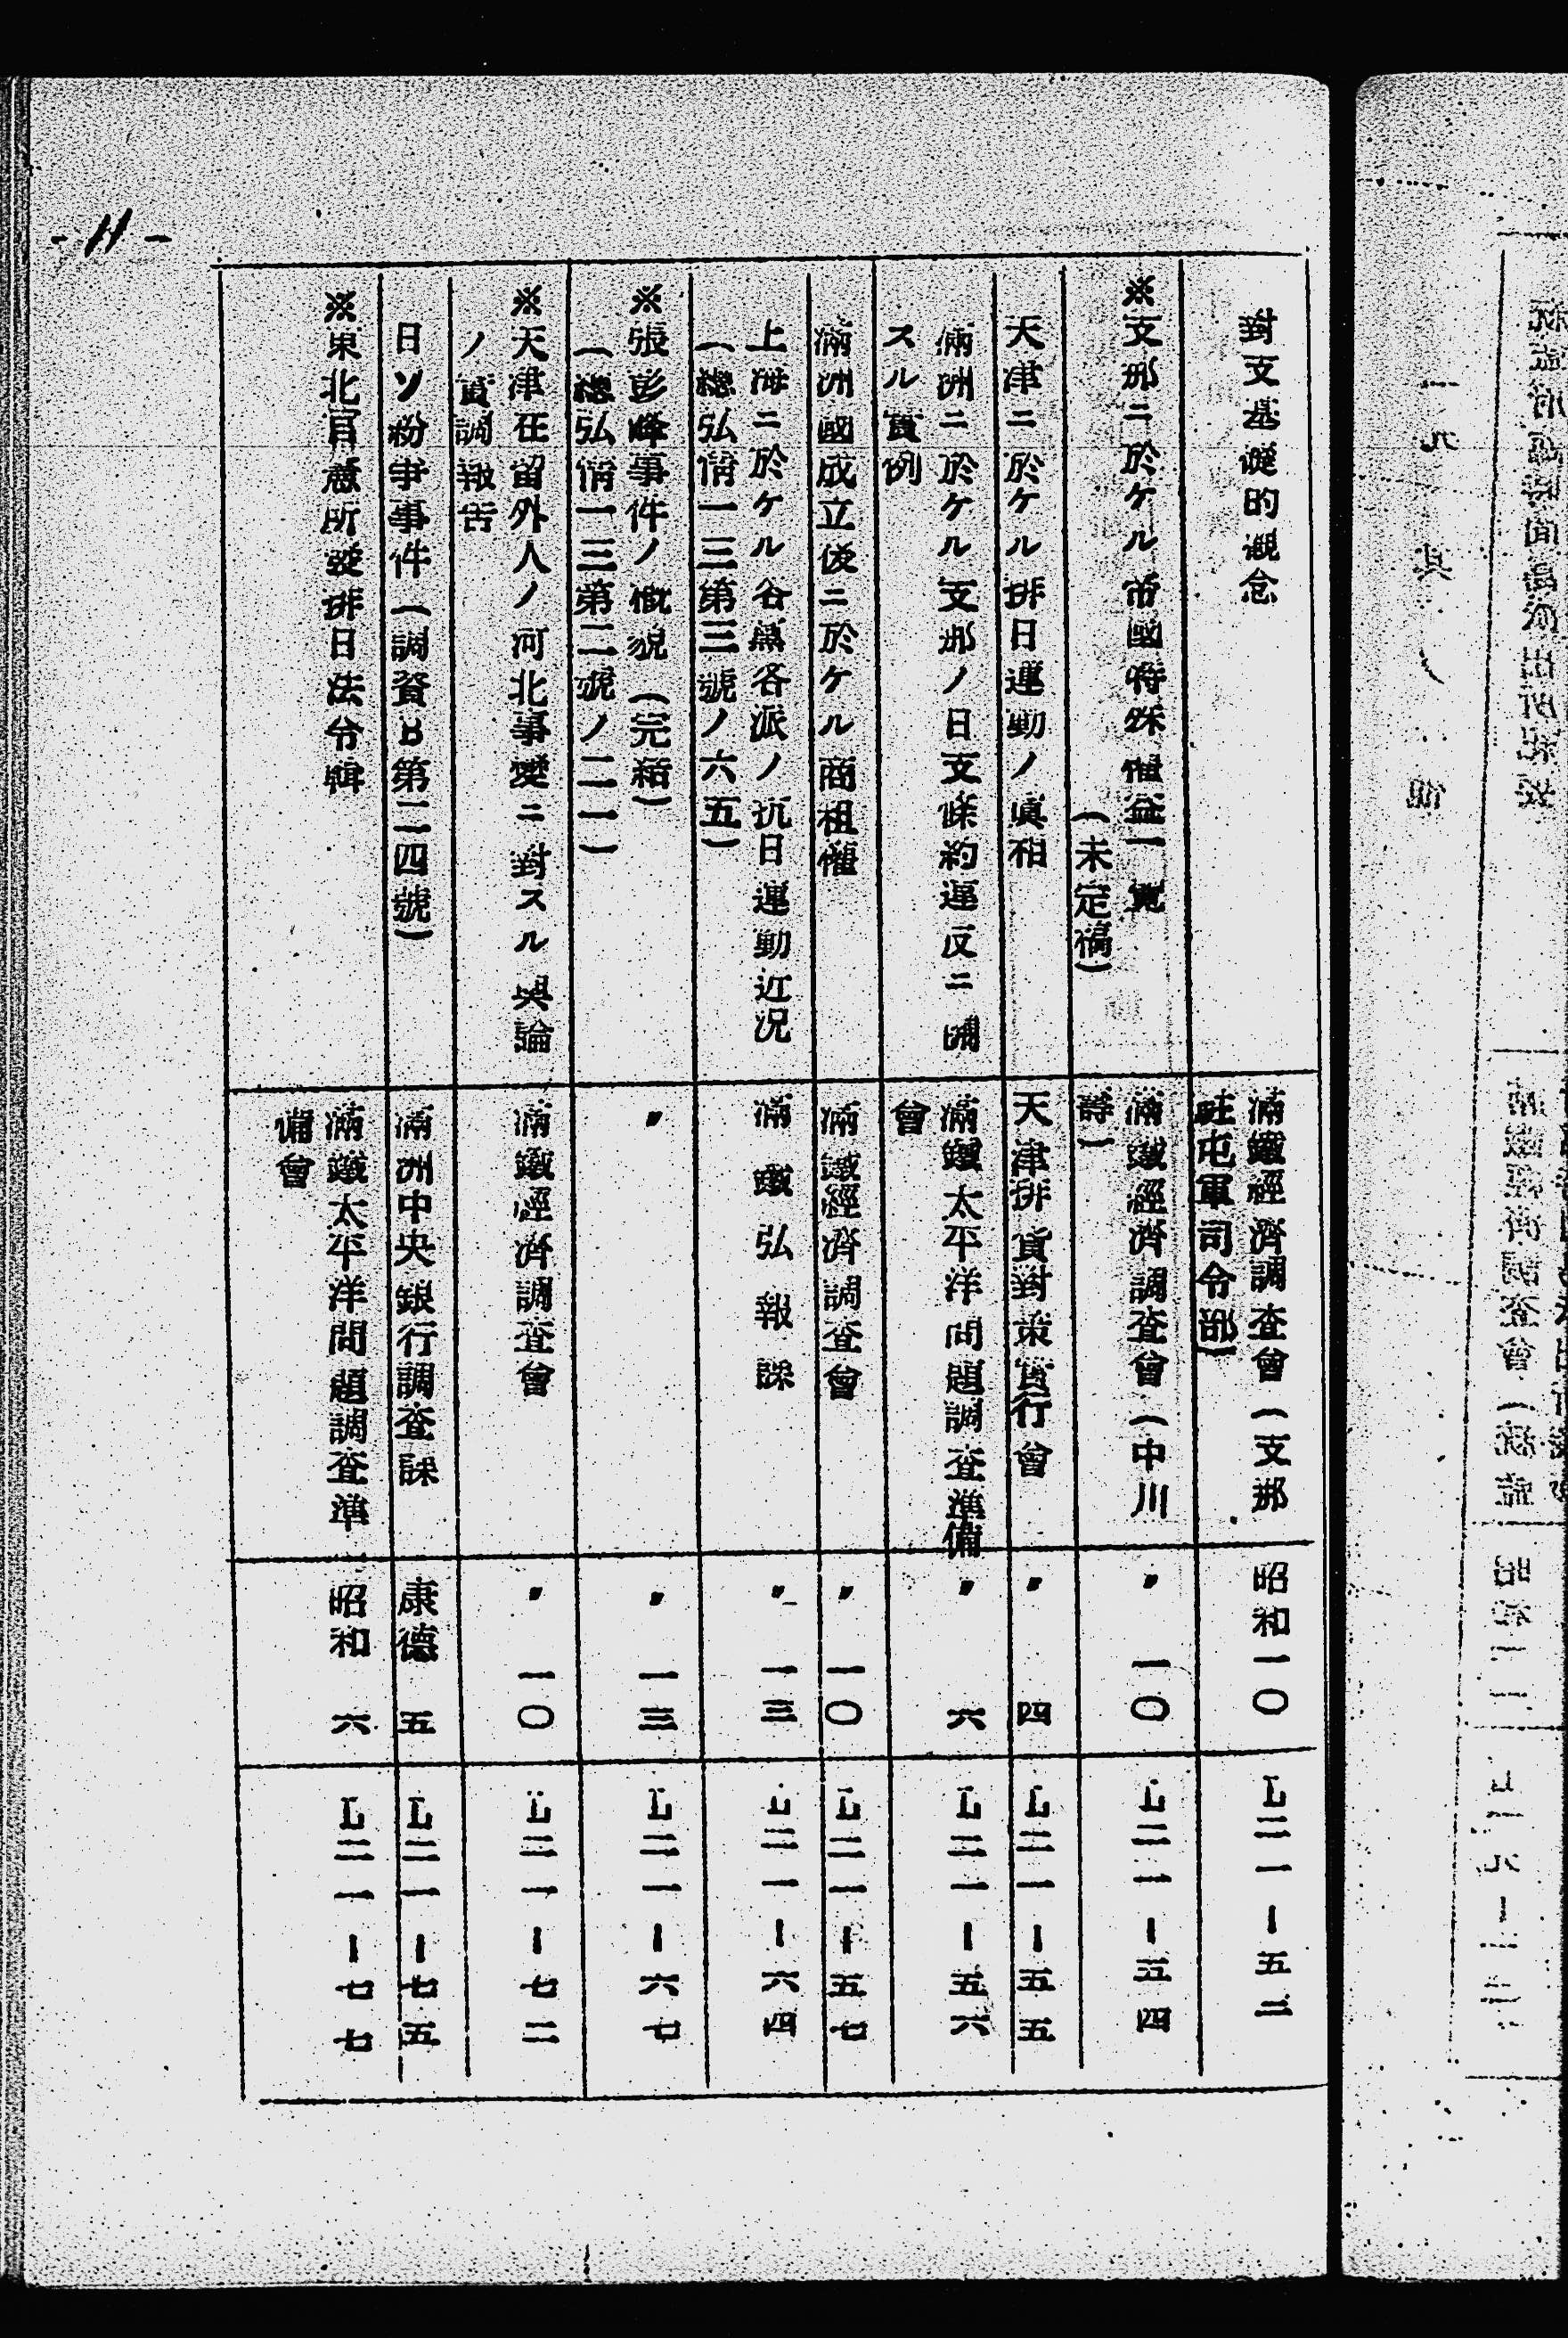 -11-
對支基礎的概念
滿鐵經濟調査會(支那
駐屯軍司令部)
昭和一〇
L二一ー五二
※支那ニ於ケル帝國特殊權益一覽
(未定稿)
滿鐵經濟調査會(中川
壽)
〃一〇
L二一ー五四
天津ニ於ケル排日運動ノ眞相
天津排貨對策實行會
〃四
L二一ー五五
滿洲ニ於ケル支那ノ日支條約違反ニ關
スル實例
滿鐵太平洋問題調査準備
會
〃六
L二一ー五六
滿洲國成立後ニ於ケル商租權
滿鐵經濟調査會
〃一〇
L二一ー五七
上海ニ於ケル各黨各派ノ抗日運動近況
(總弘情一三第三號ノ六五)
滿鐵弘報課
〃一三
L二一ー六四
※張彭峰事件ノ概貌(完結)
(總弘情一三第二號ノ二一)
〃
〃一三
L二一ー六七
※天津在留外人ノ河北事變ニ對スル輿論
ノ實調報告
滿鐵經濟調査會
〃一〇
L二一ー七二
日ソ紛爭事件(調資B第二四號)
滿洲中央銀行調査課
康德五
L二一ー七五
※東北官憲所發排日法令輯
滿鐵太平洋問題調査準
備會
昭和六
L二一ー七七